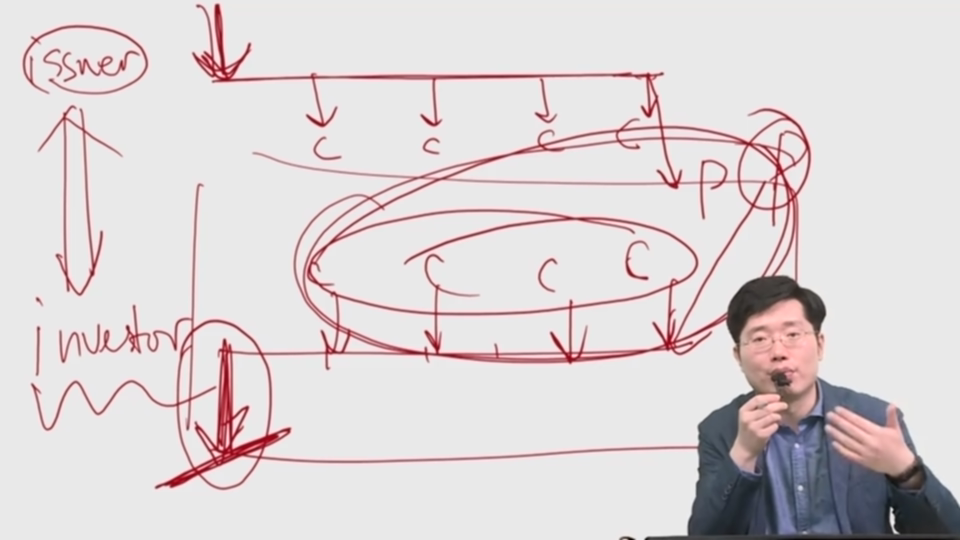 issuer
C C C C
P P
C C C C
investor